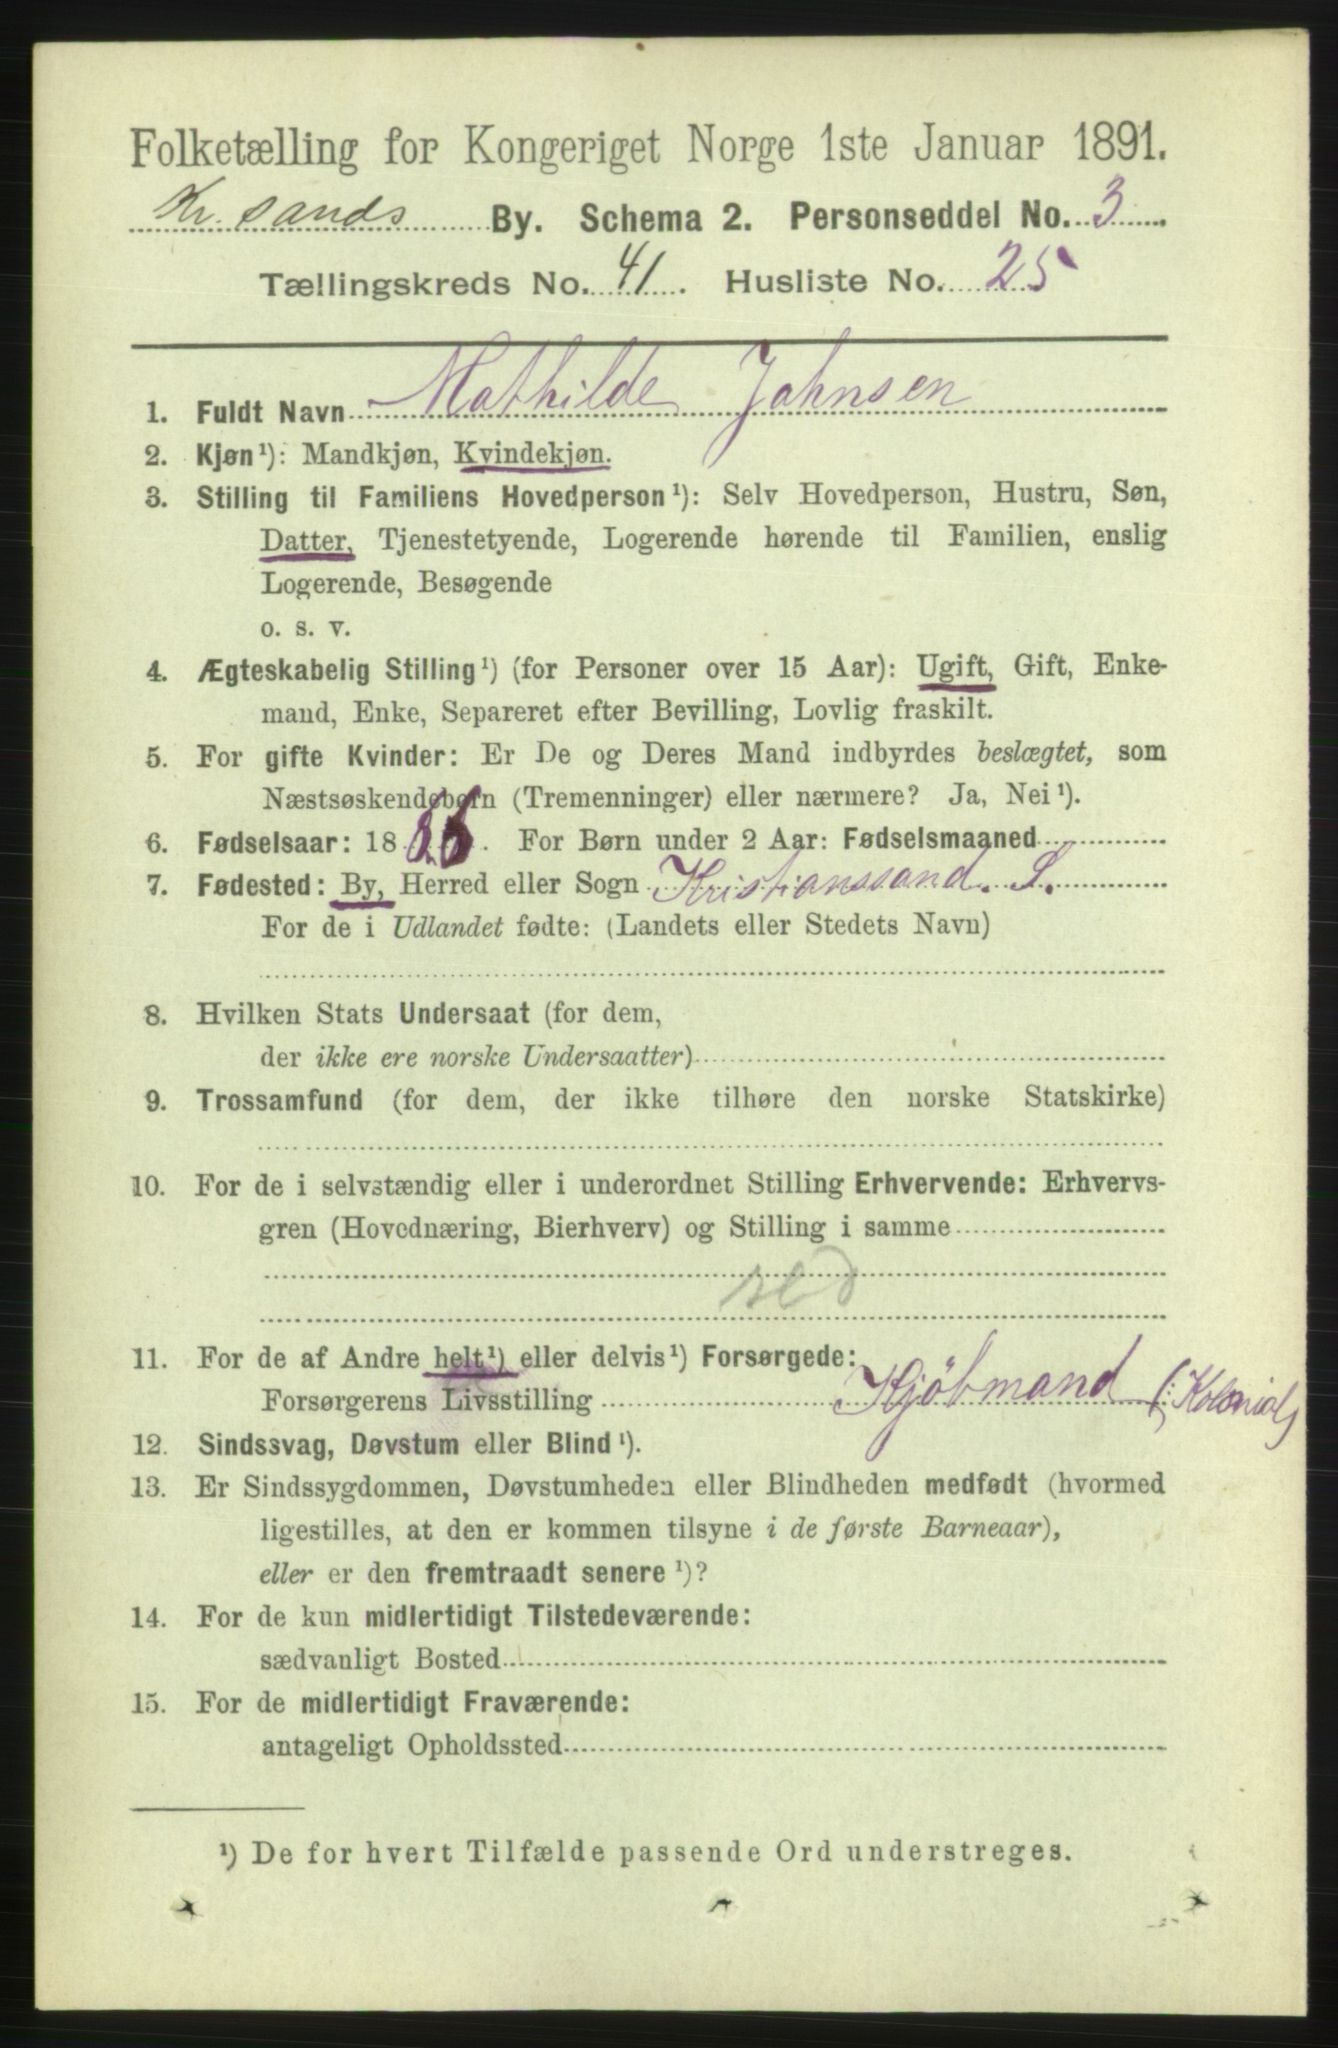 Folketælling for Kongeriget Norge 1ste Januar 1891.
Kr.sands By. Schema 2. Personseddel No. 3
Tællingskreds No. 41. Husliste No. 25
1. Fuldt Navn Mathilde Johnsen
2. Kjøn¹): Mandkjøn, Kvindekjøn.
3. Stilling til Familiens Hovedperson¹): Selv Hovedperson, Hustru, Søn,
Datter, Tjenestetyende, Logerende hørende til Familien, enslig
Logerende, Besøgende
o. s. v.
4. Ægteskabelig Stilling¹) (for Personer over 15 Aar): Ugift, Gift, Enke-
mand, Enke, Separeret efter Bevilling, Lovlig fraskilt.
5. For gifte Kvinder: Er De og Deres Mand indbyrdes beslægtet, som
Næstsøskendebørn (Tremenninger) eller nærmere? Ja, Nei¹).
6. Fødselsaar: 18 . For Børn under 2 Aar: Fødselsmaaned
7. Fødested: By, Herred eller Sogn Kristianssand. S.
For de i Udlandet fødte: (Landets eller Stedets Navn)
8. Hvilken Stats Undersaat (for dem,
der ikke ere norske Undersaatter)
9. Trossamfund (for dem, der ikke tilhøre den norske Statskirke)
10. For de i selvstændig eller i underordnet Stilling Erhvervende: Erhvervs-
gren (Hovednæring, Bierhverv) og Stilling i samme
11. For de af Andre helt¹) eller delvis¹) Forsørgede:
Forsørgerens Livsstilling Kjöbmand (Kolonial)
12. Sindssvag, Døvstum eller Blind¹).
13. Er Sindssygdommen, Døvstumheden eller Blindheden medfødt (hvormed
ligestilles, at den er kommen tilsyne i de første Barneaar),
eller er den fremtraadt senere¹)?
14. For de kun midlertidigt Tilstedeværende:
sædvanligt Bosted
15. For de midlertidigt Fraværende:
antageligt Opholdssted
¹) De for hvert Tilfælde passende Ord understreges.